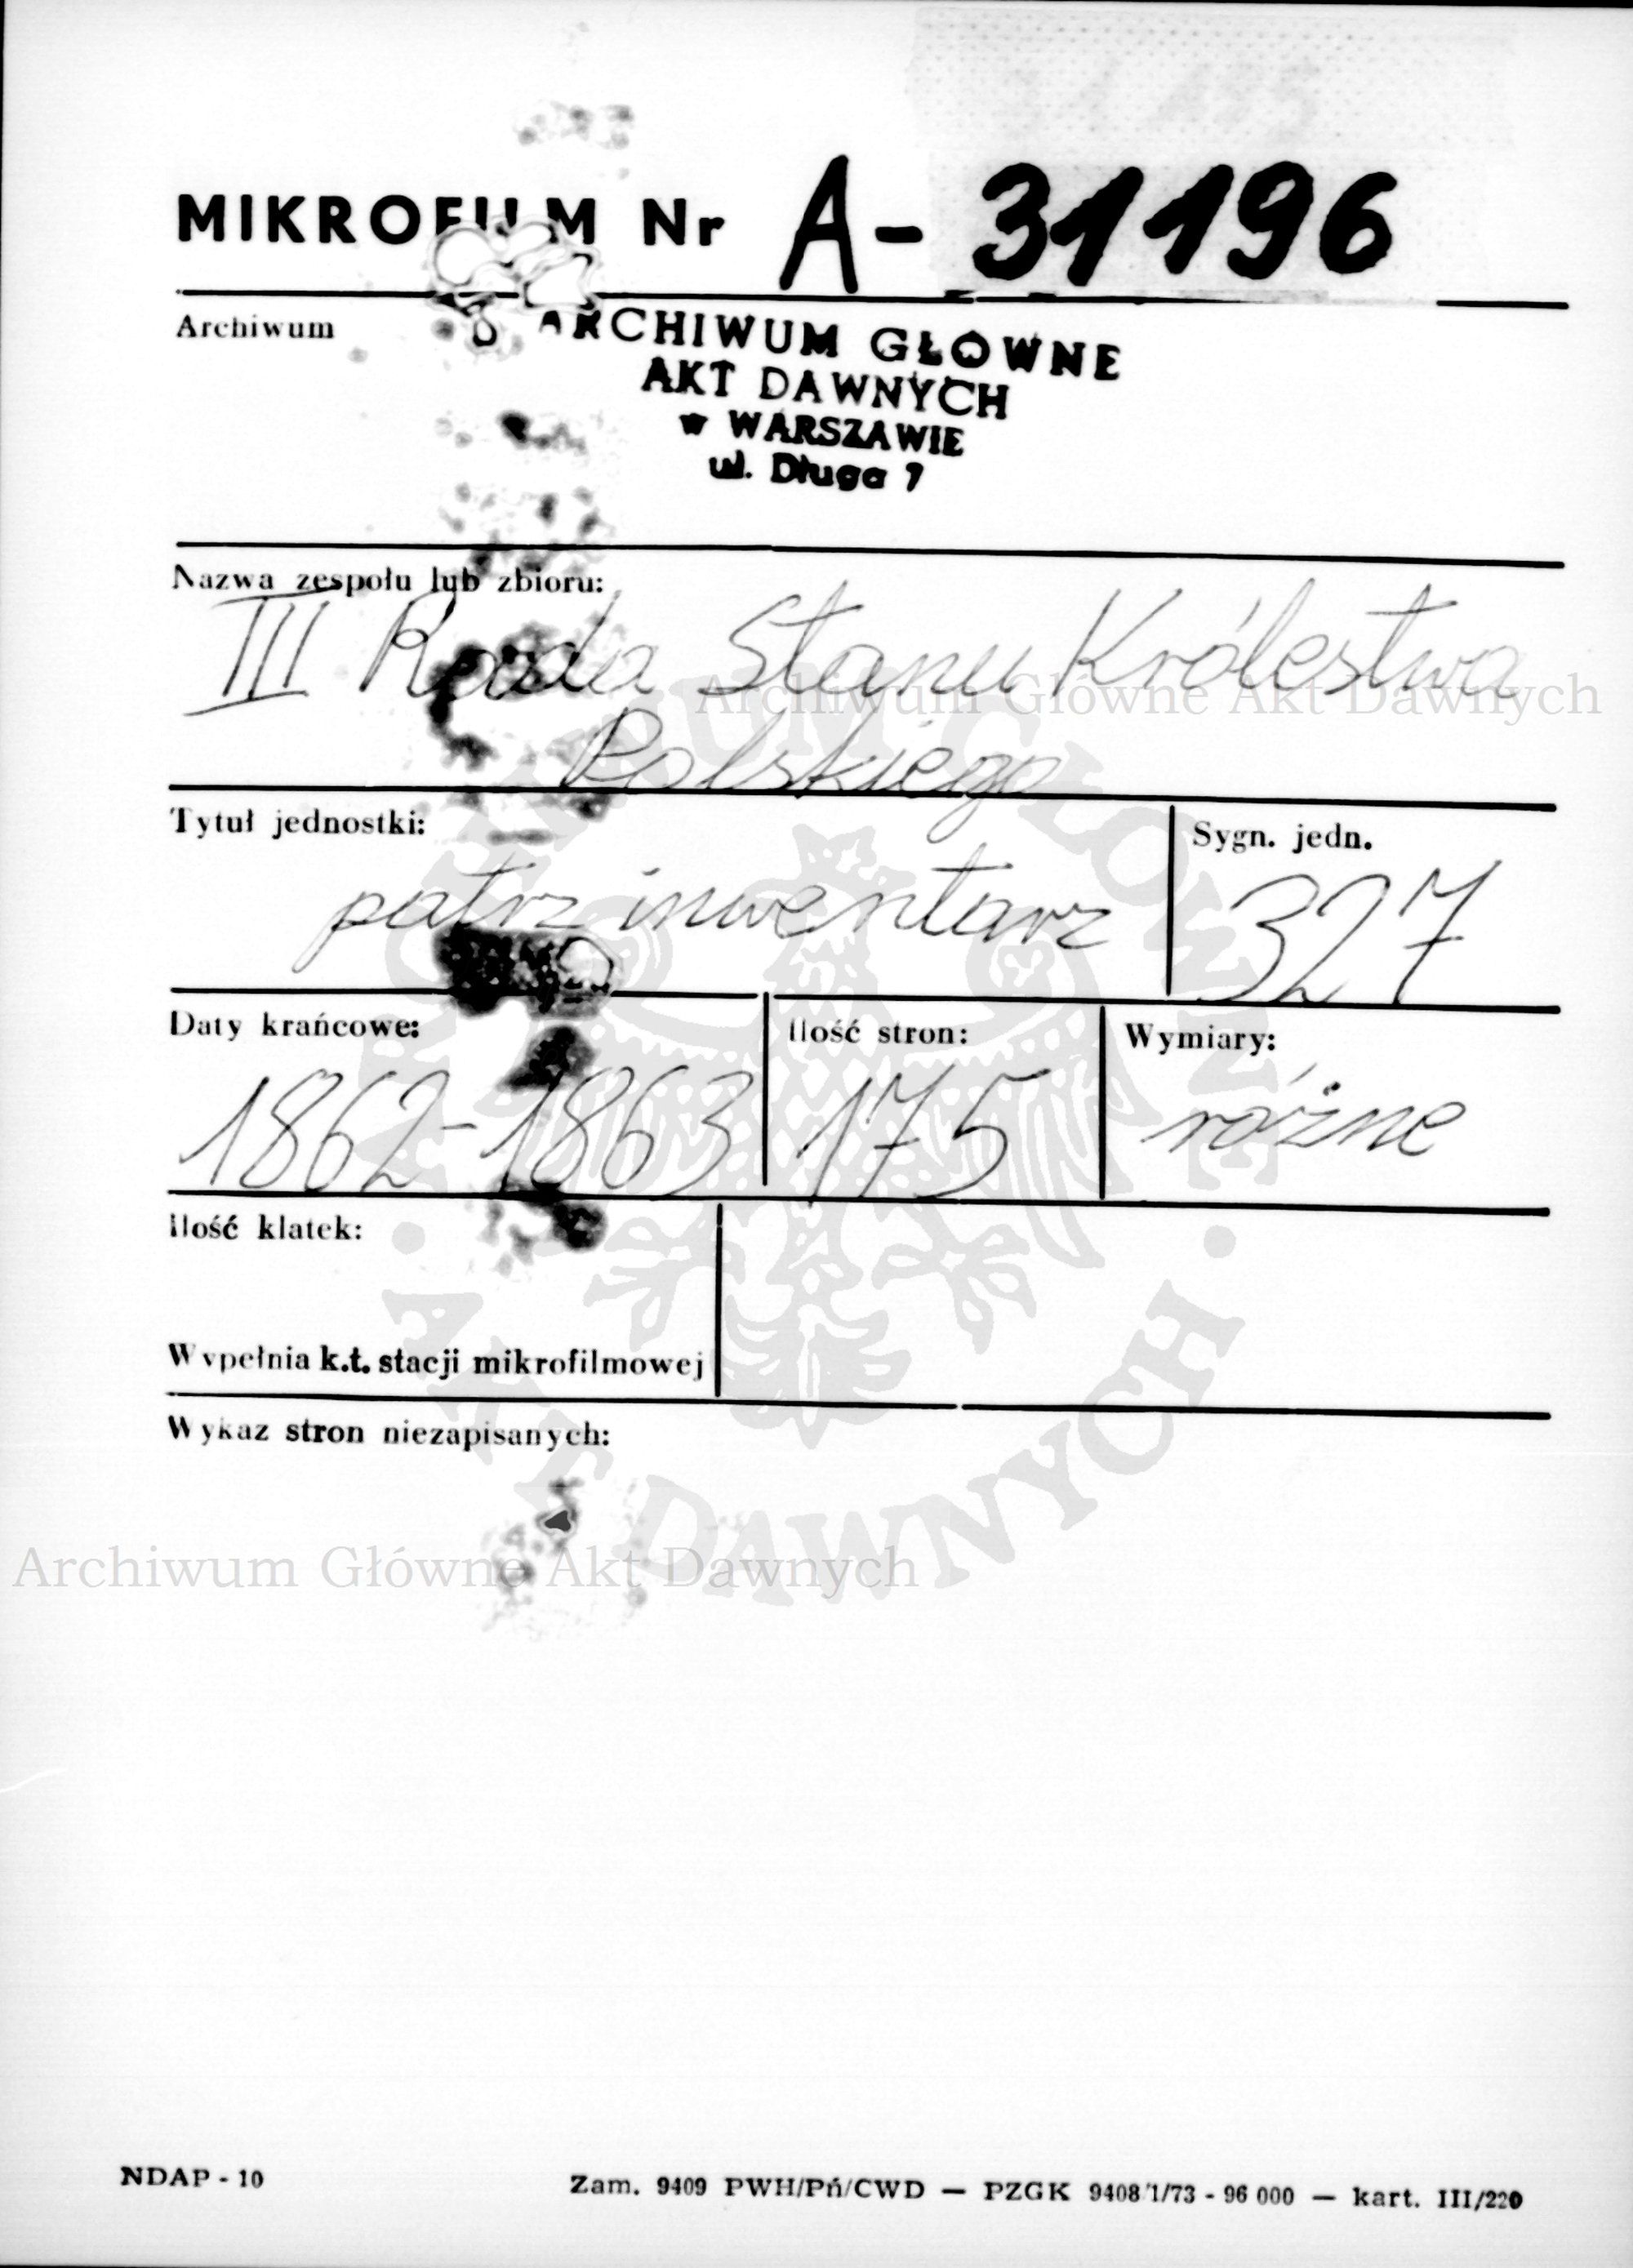 MIKROFILM Nr A-31196
Archiwum
ARCHIWUM GŁÓWNE
AKT DAWNYCH
w WARSZAWIE
ul. Długa 7
Nazwa zespołu lub zbioru:
III Rada Stanu Królestwa
Polskiego
Archiwum Główne Akt Dawnych
Tytuł jednostki:
patrz inwentarz
Sygn. jedn.
327
Daty krańcowe:
1862-1863
Ilość stron:
175
Wymiary:
różne
Ilość klatek:
Wypełnia k.t. stacji mikrofilmowej
Wykaz stron niezapisanych:
ARCHIWUM GŁÓWNE · AKT DAWNYCH ·
Archiwum Główne Akt Dawnych
NDAP - 10
Zam. 9409 PWH/Pń/CWD — PZGK 9408/1/73 - 96 000 — kart. III/220